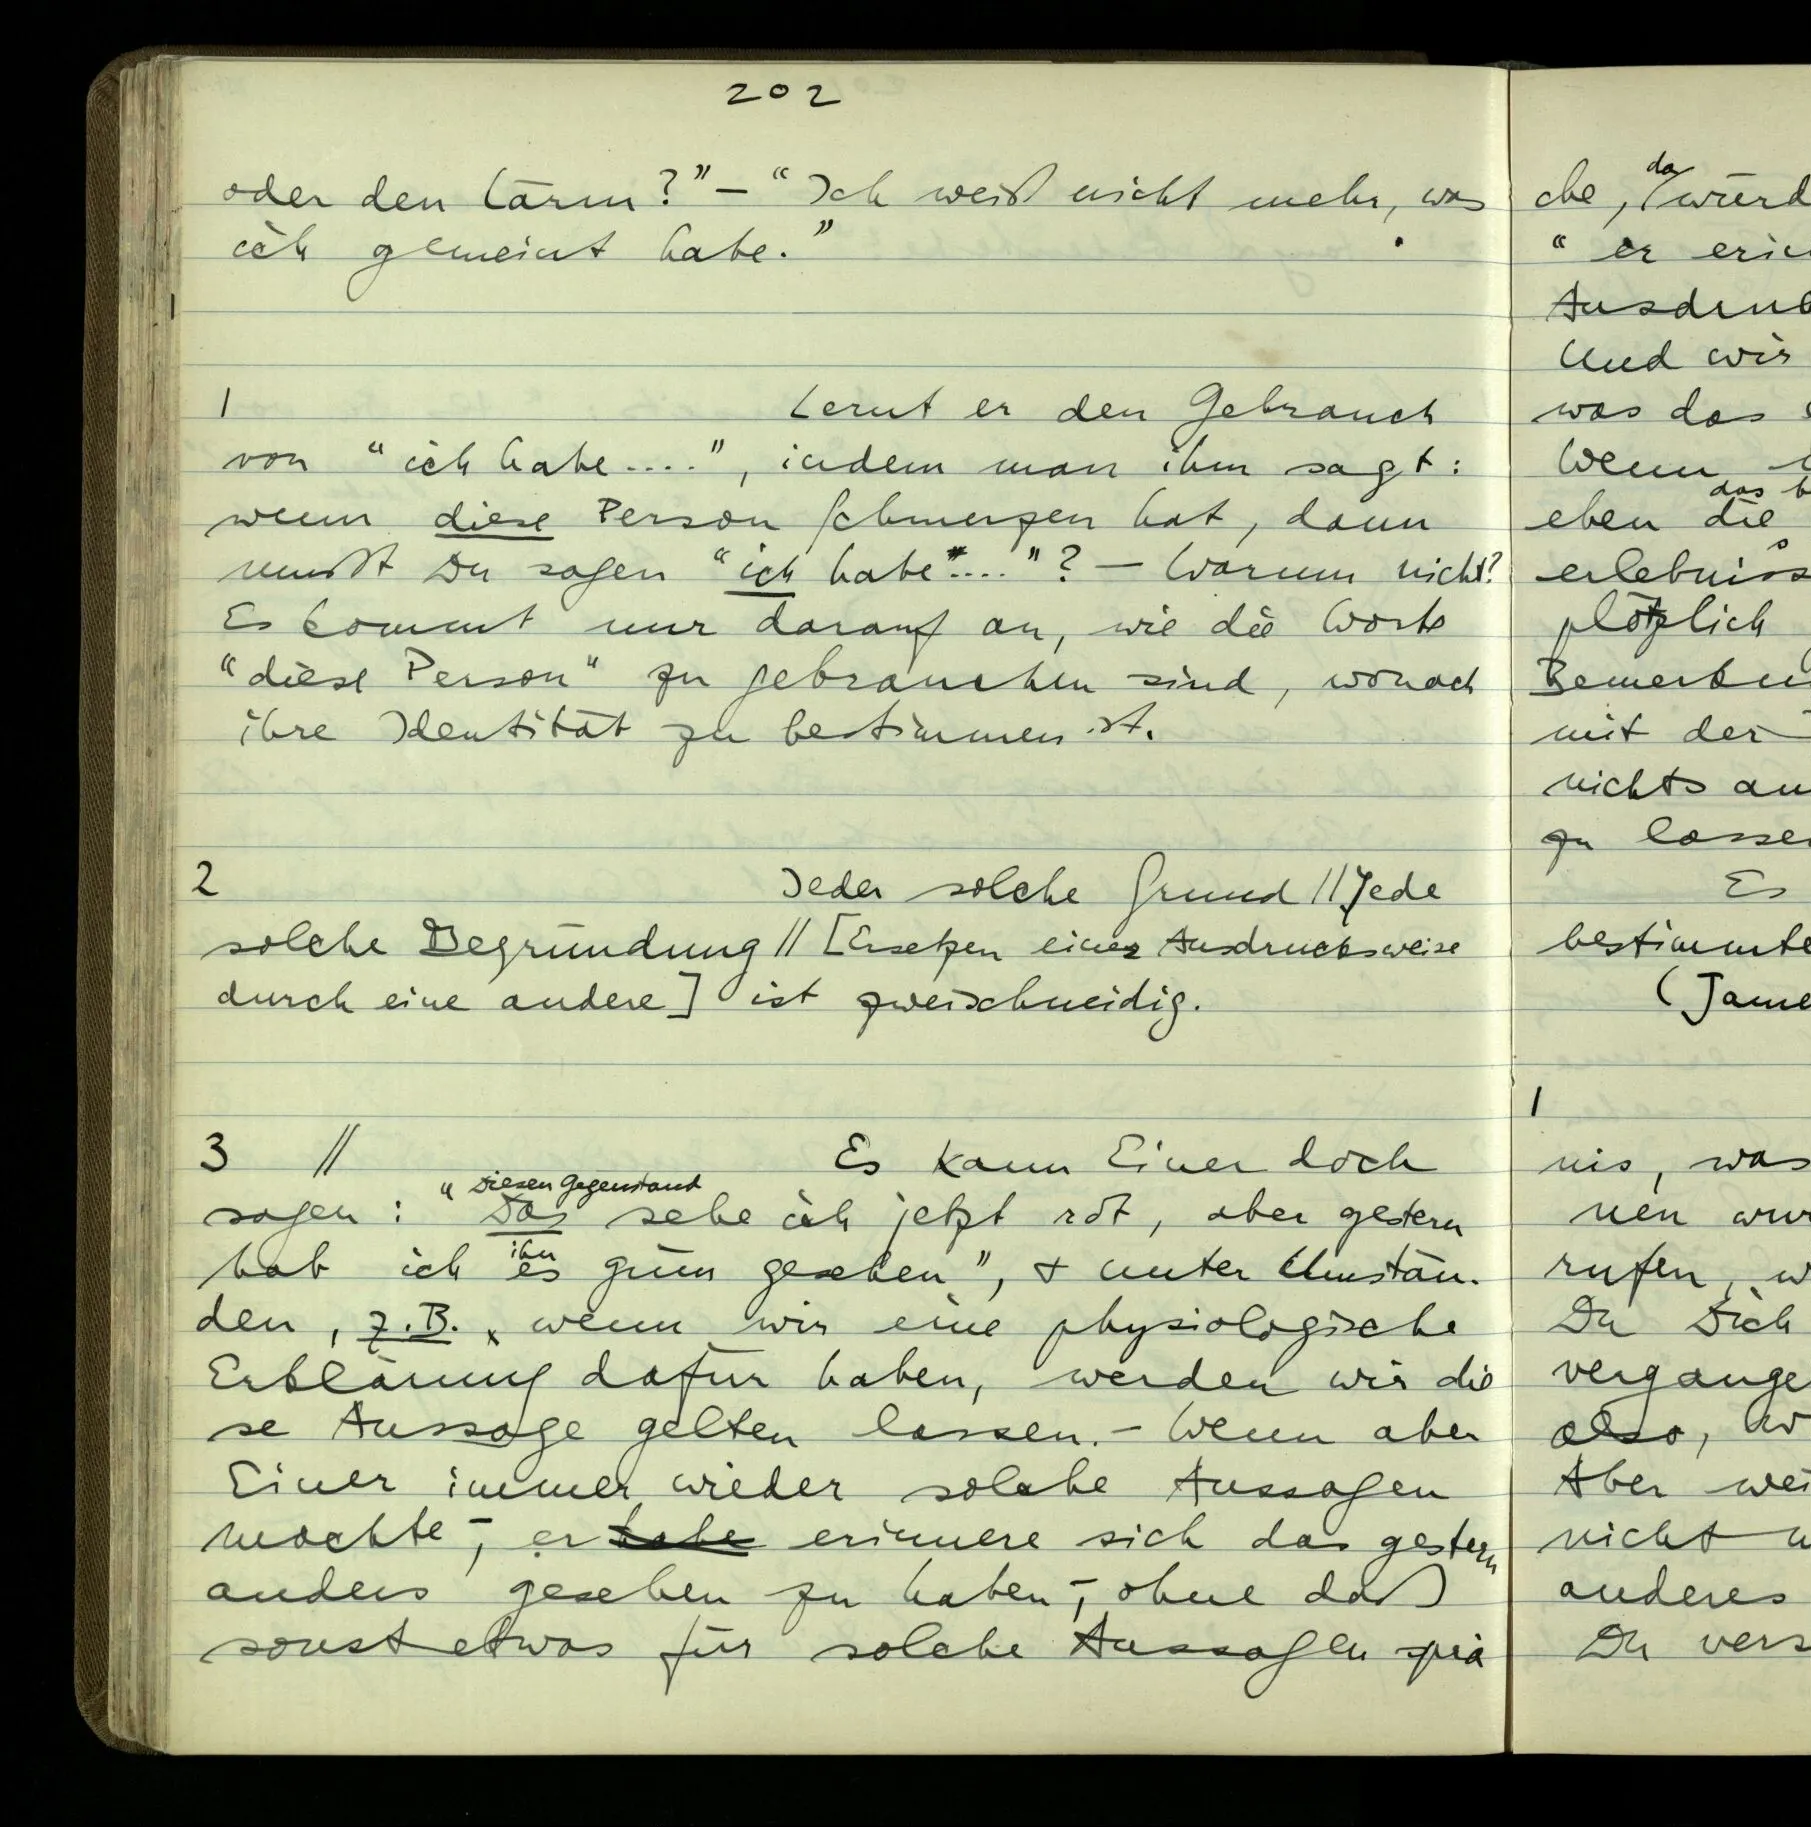 202
oder den Lärm?" – "Ich weiß nicht mehr, was
ich gemeint habe."
1
Lernt er den Gebrauch
von "ich habe ....", indem man ihm sagt:
wenn diese Person Schmerzen hat, dann
mußt Du sagen "ich habe ...."? – Warum nicht?
Es kommt nur darauf an, wie die Worte
"diese Person" zu gebrauchen sind, wonach
ihre Identität zu bestimmen ist.
2
Jeder solche Grund // Jede
solche Begründung // [Ersetzen einer Ausdrucksweise
durch eine andere] ist zweischneidig.
3 // Es kann Einer doch
Diesen Gegenstand
sagen: "Das sehe ich jetzt rot, aber gestern
ihn
hab ich es grün gesehen", & unter Umstän-
den, z.B., wenn wir eine physiologische
Erklärung dafür haben, werden wir die
se Aussage gelten lassen. – Wenn aber
Einer immer wieder solche Aussagen
machte –, er habe erinnere sich das gestern
anders gesehen zu haben –, ohne daß
sonst etwas für solche Aussagen sprä
da
che, würd
" er erin
Ausdruck
Und wir
was das
Wenn
das b
eben die
erlebniss
plötzlich
Bemerku
mit der
nichts an
zu lassen
Es
bestimmte
(Jame
1
nis, was
nen wur
rufen, w
Du Dich
vergange
also, w
Aber wei
nicht w
anderes
Du vers